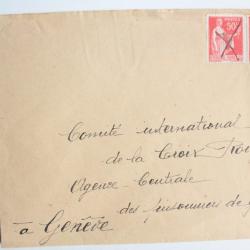 50c
POSTES
Comité international
de la Croix-Rou
Agence Centrale
des prisonniers de g
à Genève